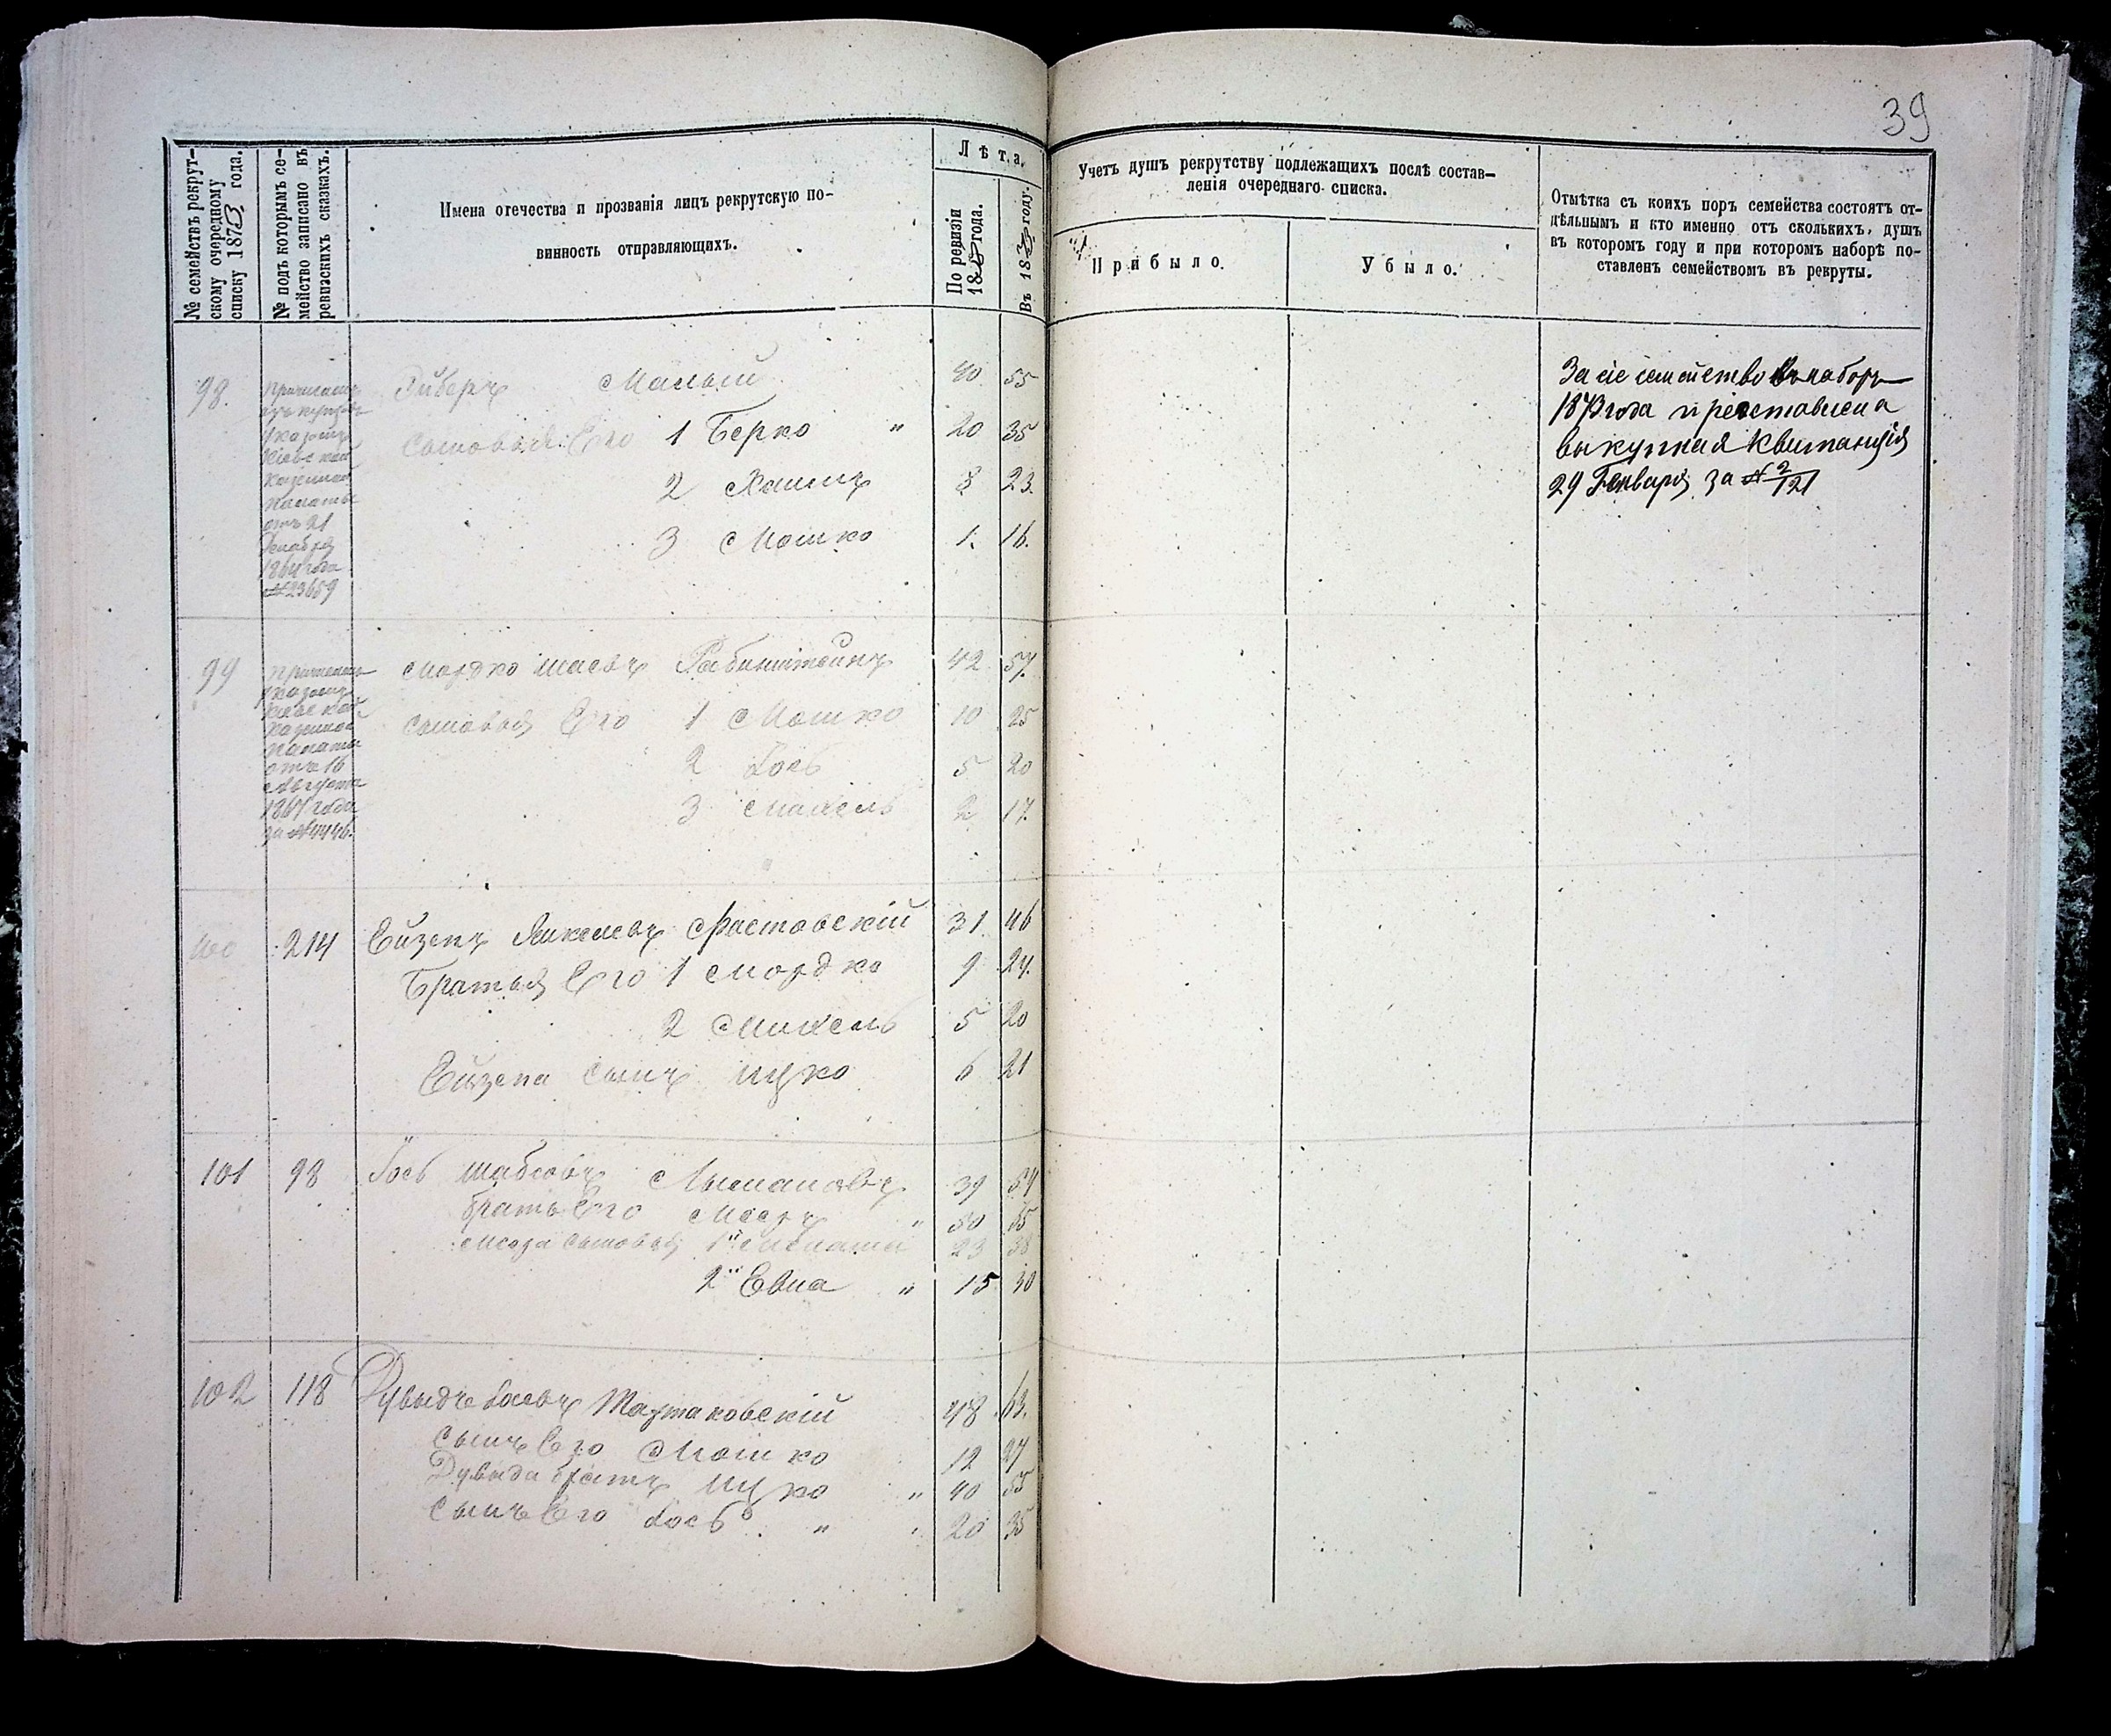 39
№ семействъ рекрут-
скому очередному
списку 1873 года.
№ подъ которымъ се-
мейство записано въ
ревизскихъ сказкахъ.
Имена отечества и прозванія лицъ рекрутскую по-
винность отправляющихъ.
Лѣта.
По ревизіи
18 года.
Въ 1873 году.
Учетъ душъ рекрутству подлежащихъ послѣ состав-
ленія очереднаго списка.
Прибыло.
Убыло.
Отмѣтка съ коихъ поръ семейства состоятъ от-
дѣльнымъ и кто именно отъ сколькихъ, душъ
въ которомъ году и при которомъ наборѣ по-
ставленъ семействомъ въ рекруты.
98.
указомъ
Кіевской
Казенной
Палаты
отъ 21
Декабря
1864 года
№ 23659
Лейберъ Малый 40 55
Сыновья Его 1 Берко " 20 35
2 Хаимъ 8 23.
3 Мошко 1. 16.
За сіе семейство въ наборъ
1873 года представлена
выкупная Квитанція
29 Генваря за № 2/121
99
указомъ
Кіевской
Казенной
Палаты
отъ 16
Августа
1867 года
за № 4446.
Мордко Рабинштейнъ 42 57.
Сыновья Его 1 Мошко 10 25
2 Іось 5 20
3 2 17.
100 214 Ейзепъ Янкелевъ Фастовскій 31. 46
Братья Его 1 Мордко 9 24.
2 Михель 5 20
Ейзепа сынъ Ицко 6 21
101 98 Іось Шабсовъ 39 54
братъ Его " 55
сыновья 1й 23 38
2й Евна " 15 30
102 118 Дувыдъ Іосевъ Тартаковскій 48 63.
Сынъ Его Мошко 12 27
Дувыда братъ Ицко " 40 55
Сынъ Его Іось " 20 35